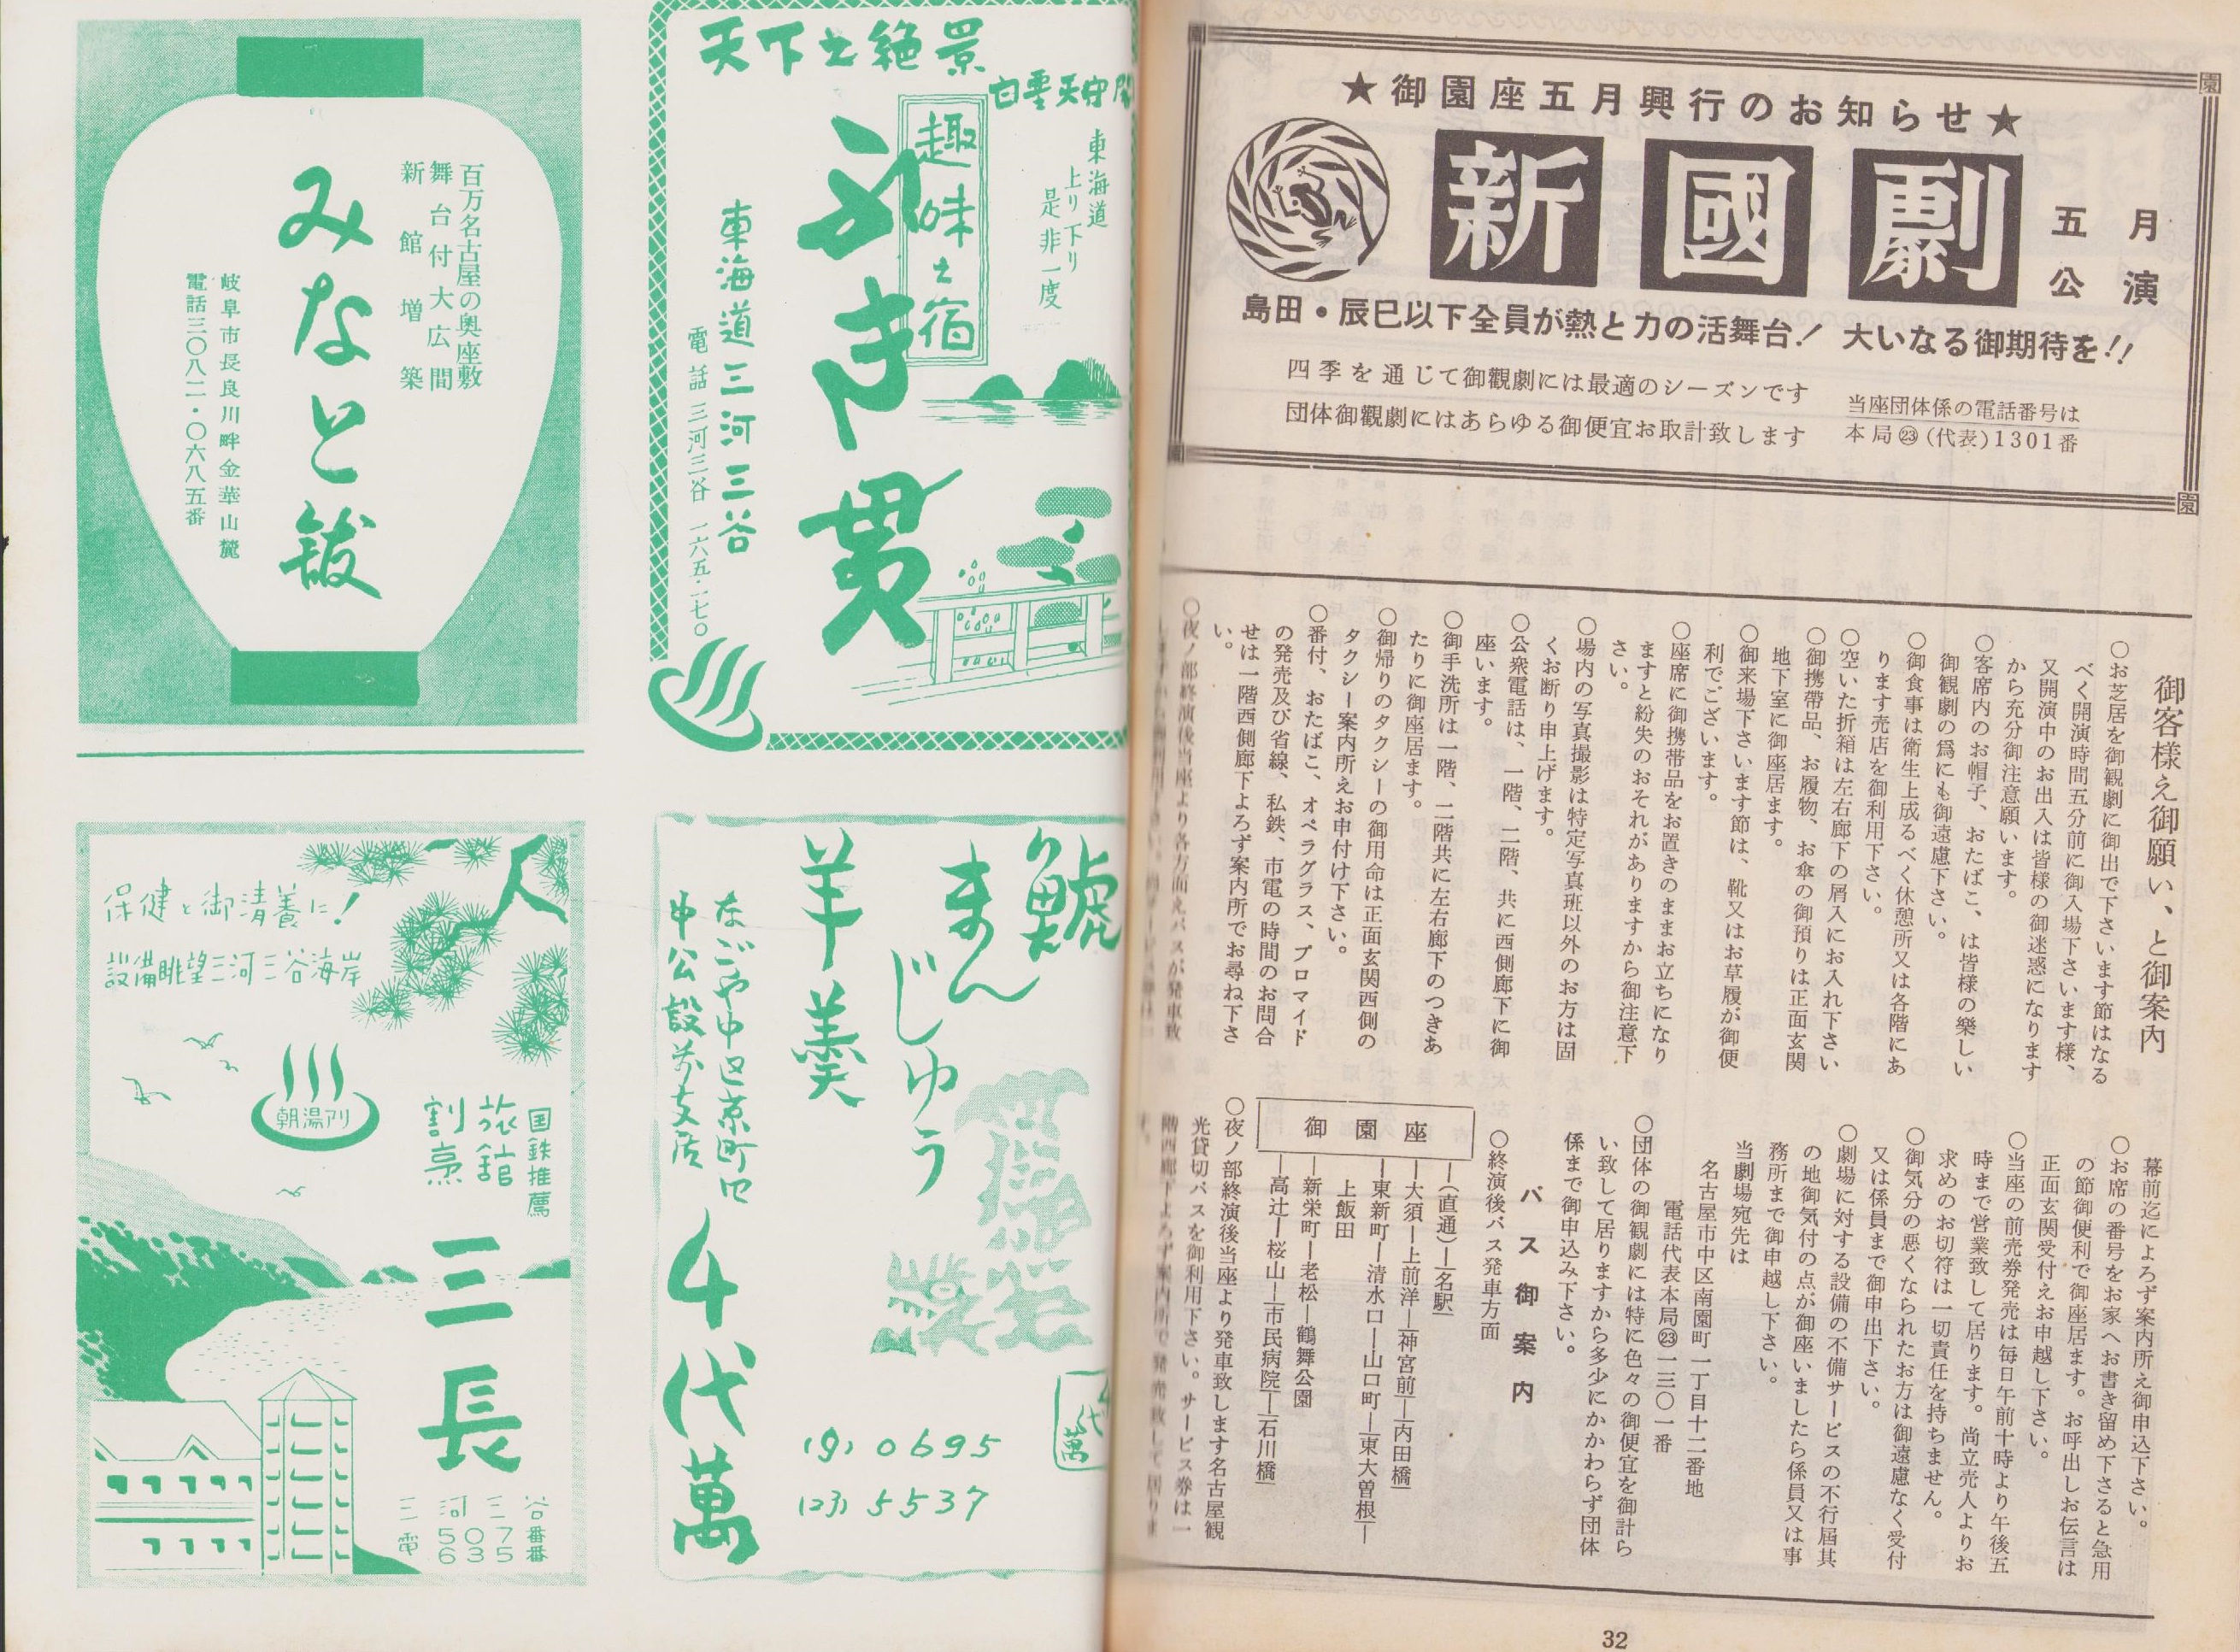 ★御園座五月興行のお知らせ★
新國劇
五月
公演
島田・辰巳以下全員が熱と力の活舞台！ 大いなる御期待を!!
四季を通じて御観劇には最適のシーズンです
団体御観劇にはあらゆる御便宜お取計致します
当座団体係の電話番号は
本局㉓(代表)1301番
御客様え御願い、と御案内
○お芝居を御観劇に御出で下さいます節はなる
べく開演時間五分前に御入場下さいます様、
又開演中のお出入は皆様の御迷惑になります
から充分御注意願います。
○客席内のお帽子、おたばこ、は皆様の樂しい
御観劇の爲にも御遠慮下さい。
○御食事は衛生上成るべく休憩所又は各階にあ
ります売店を御利用下さい。
○空いた折箱は左右廊下の屑入にお入れ下さい
○御携帶品、お履物、お傘の御預りは正面玄関
地下室に御座居ます。
○御来場下さいます節は、靴又はお草履が御便
利でございます。
○座席に御携帯品をお置きのままお立ちになり
ますと紛失のおそれがありますから御注意下
さい。
○場内の写真撮影は特定写真班以外のお方は固
くお断り申上げます。
○公衆電話は、一階、二階、共に西側廊下に御
座います。
○御手洗所は一階、二階共に左右廊下のつきあ
たりに御座居ます。
○御帰りのタクシーの御用命は正面玄関西側の
タクシー案内所えお申付け下さい。
○番付、おたばこ、オペラグラス、プロマイド
の発売及び省線、私鉄、市電の時間のお問合
せは一階西側廊下よろず案内所でお尋ね下さ
い。
○夜ノ部終演後当座より各方面えバスが発車致
幕前迄によろず案内所え御申込下さい。
○お席の番号をお家へお書き留め下さると急用
の節御便利で御座居ます。お呼出しお伝言は
正面玄関受付えお申越し下さい。
○当座の前売券発売は毎日午前十時より午後五
時まで営業致して居ります。尚立売人よりお
求めのお切符は一切責任を持ちません。
○御気分の悪くなられたお方は御遠慮なく受付
又は係員まで御申出下さい。
○劇場に対する設備の不備サービスの不行屆其
の他御気付の点が御座いましたら係員又は事
務所まで御申越し下さい。
当劇場宛先は
名古屋市中区南園町一丁目十二番地
電話代表本局㉓一三〇一番
○団体の御観劇には特に色々の御便宜を御計ら
い致して居りますから多少にかかわらず団体
係まで御申込み下さい。
バス御案内
○終演後バス発車方面
御園座
―(直通)―名駅
―大須―上前津―神宮前―内田橋
―東新町―清水口―山口町―東大曽根―
上飯田
―新栄町―老松―鶴舞公園
―高辻―桜山―市民病院―石川橋
○夜ノ部終演後当座より発車致します名古屋観
光貸切バスを御利用下さい。サービス券は一
階西廊下よろず案内所で発売致して居りま
32
天下之絶景
白雲天守閣
東海道
上り下り
是非一度
趣味之宿
ふき貫
東海道三河三谷
電話三河三谷一六五・一七〇
百万名古屋の奥座敷
舞台付大広間
新館増築
みなと館
岐阜市長良川畔金華山麓
電話三〇八二・〇六八五番
鯱
まんじゅう
羊羹
なごや中区京町四
中公設前支店
千代萬
(9) 0695
(23) 5537
千代萬
保健と御清養に！
設備眺望三河三谷海岸
朝湯アリ
国鉄推薦
旅舘
割烹
三長
三河三谷
電507番
635番